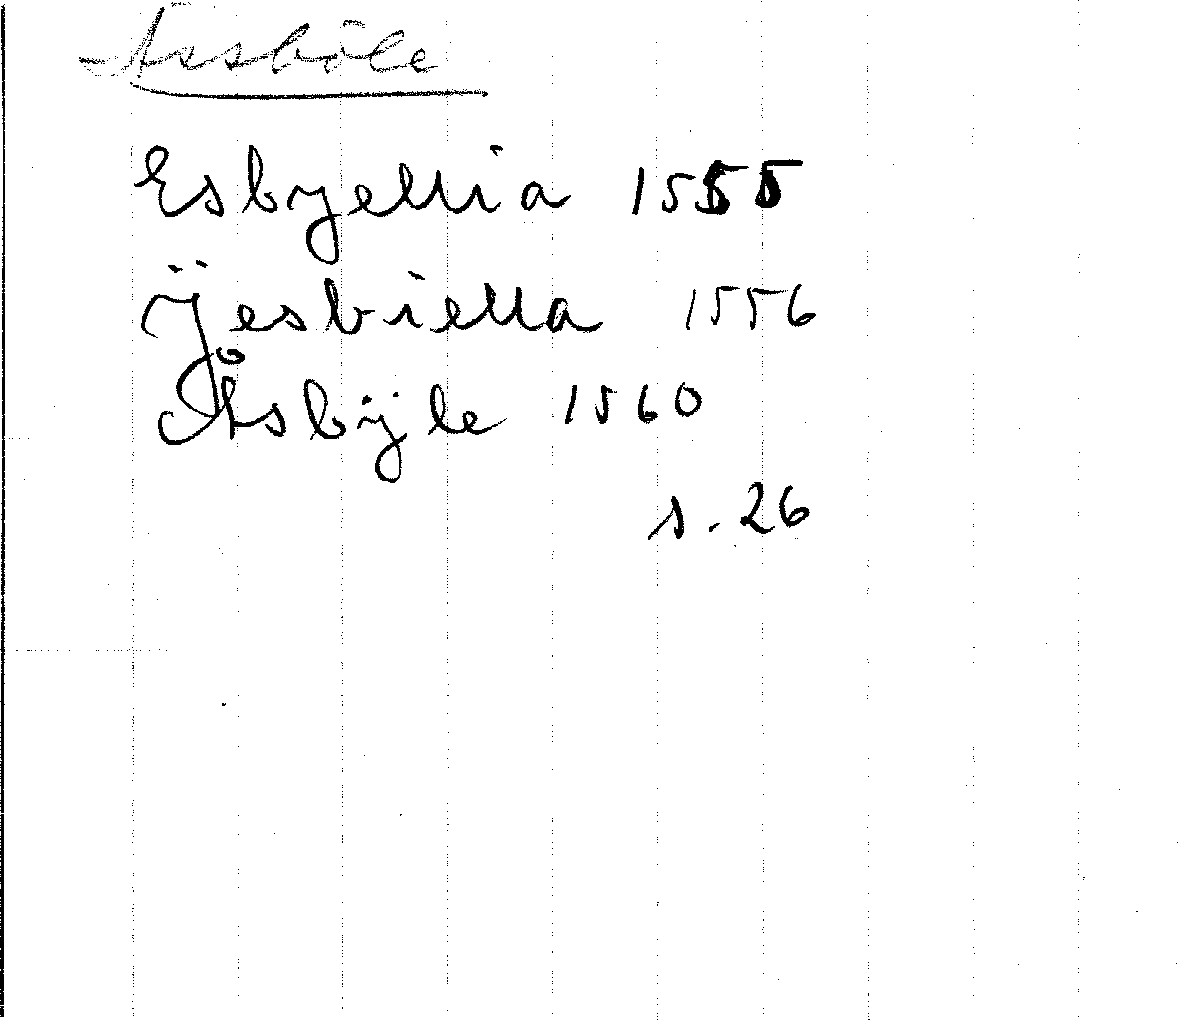 Ässböle
Esbyellia 1555
Ÿesbiella 1556
Åsbÿle 1560
s. 26